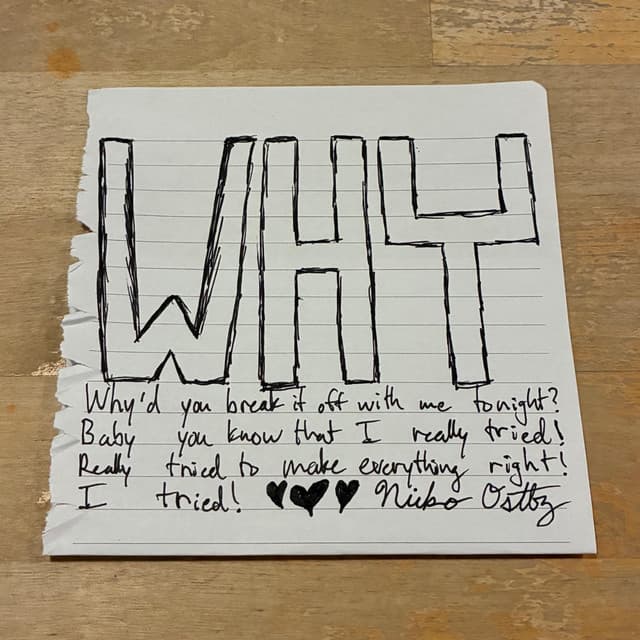 WHY
Why'd you break it off with me tonight?
Baby you know that I really tried!
Really tried to make everything right!
I tried!